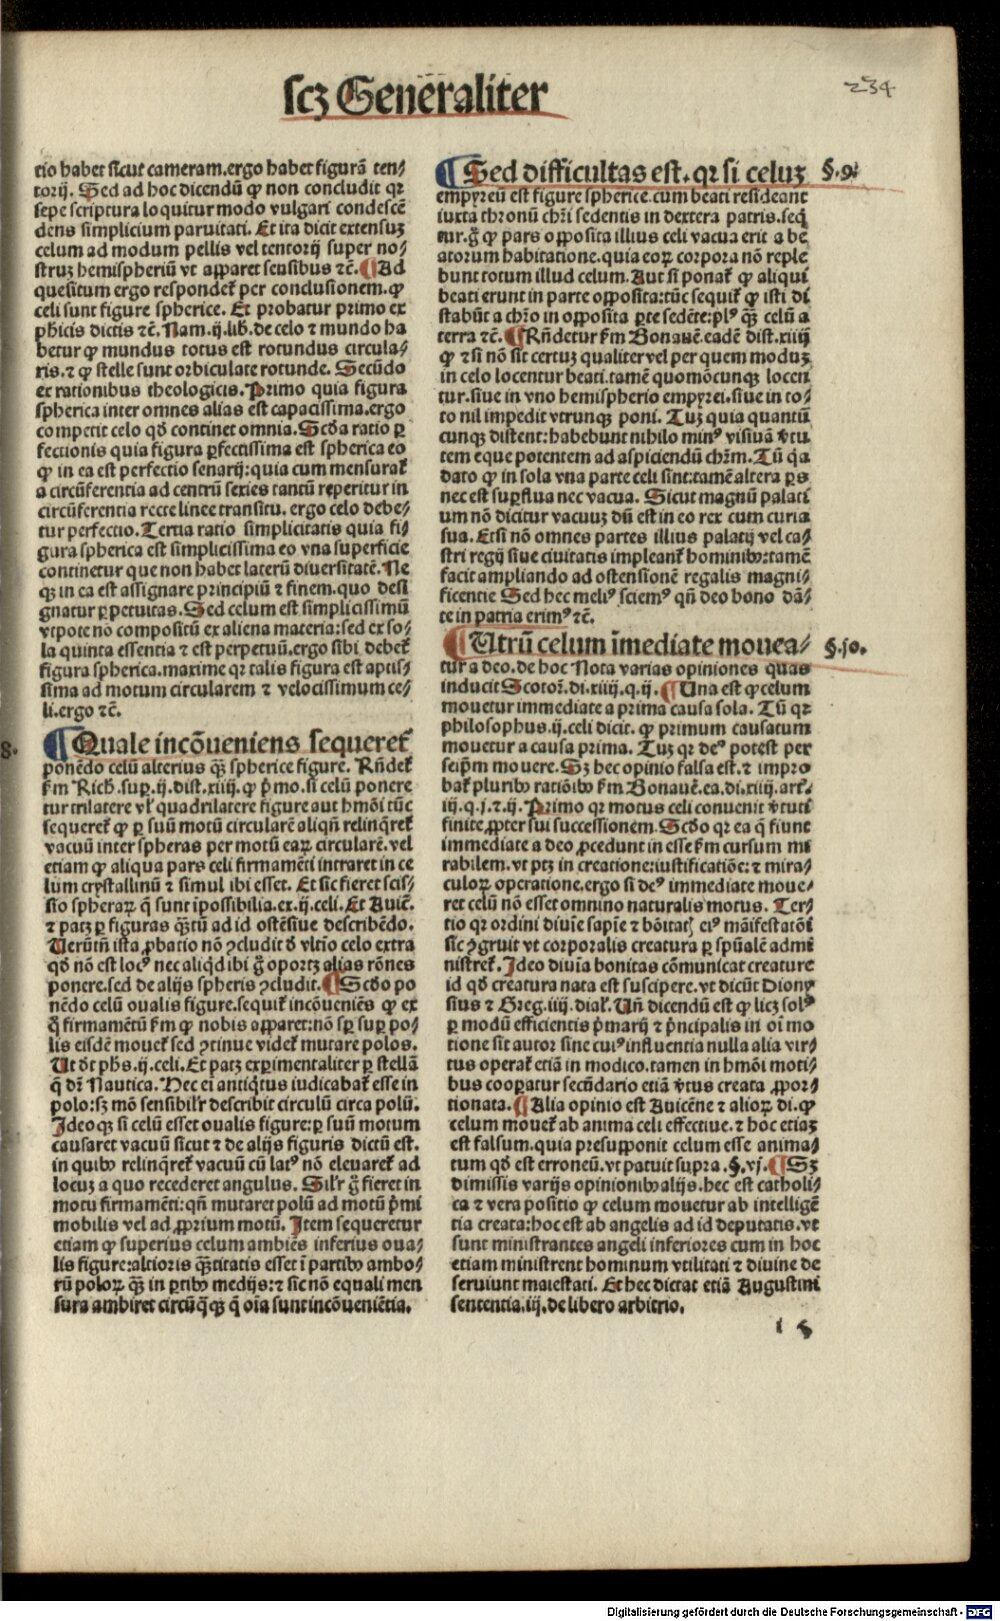 scꝫ Generaliter
234
tio habet sicut cameram.ergo habet figurā ten⸗
torij. Sed ad hoc dicendū ꝙ non concludit qꝛ
sepe scriptura loquitur modo vulgari condescē
dens simplicium paruitati. Et ita dicit extensuꝫ
celum ad modum pellis vel tentorij super no⸗
struꝫ hemispheriū vt apparet sensibus ⁊c̄. ¶Ad
quesitum ergo respondeť per conclusionem.ꝙ
celi sunt figure spherice. Et probatur primo ex
ph̄icis dictis ⁊c̄. Nam.ij.lib.de celo ⁊ mundo ha
betur ꝙ mundus totus est rotundus circula⸗
ris.⁊ ꝙ stelle sunt orbiculate rotunde. Secūdo
ex rationibus theologicis. Primo quia figura
spherica inter omnes alias est capacissima.ergo
competit celo qd̄ continet omnia. Scďa ratio ꝑ
fectionis quia figura ꝑfectissima est spherica eo
ꝙ in ea est perfectio senarij:quia cum mensurať
a circūferentia ad centrū sexies tantū reperitur in
circūferentia recte linee transitu. ergo celo debe⸗
tur perfectio. Tertia ratio simplicitatis quia fi⸗
gura spherica est simplicissima eo vna superficie
continetur que non habet laterū diuersitatē. Ne
qꝫ in ea est assignare principiū ⁊ finem.quo desi
gnatur ꝑpetuitas. Sed celum est simplicissimū
vtpote nō compositū ex aliena materia:sed ex so⸗
la quinta essentia ⁊ est perpetuū.ergo sibi debeť
figura spherica.maxime qꝛ talis figura est aptis⸗
sima ad motum circularem ⁊ velocissimum ce⸗
li.ergo ⁊c̄.
8.
¶Quale incōueniens sequereť
ponēdo celū alterius qꝫ̄ spherice figure. Rn̄deť
ẜm Rich.suꝑ.ij.dist.xiiij.ꝙ p̄mo.si celū ponere
tur trilatere vľ quadrilatere figure aut hmōi tūc
sequereť ꝙ ꝑ suū motū circularē aliqñ relinq̄reť
vacuū inter spheras per motū eaꝝ circularē. vel
etiam ꝙ aliqua pars celi firmamēti intraret in ce
lum crystallinū ⁊ simul ibi esset. Et sic fieret scis⸗
sio spheraꝝ q̄ sunt īpossibilia.ex.ij.celi. Et Auiē.
⁊ patꝫ ꝑ figuras qꝫ̄tū ad id ostēsiue describēdo.
Uerūtn̄ ista ꝓbatio nō ꝯcludit ď vltīo celo extra
qd̄ nō est locꝰ nec aliqd ibi ḡ oportꝫ alias rōnes
ponere.sed de alijs spheris ꝯcludit. ¶Scďo po
nēdo celū oualis figure.sequiť incōueniēs ꝙ ex
q̊ firmamētū ẜm ꝙ nobis apparet:nō sꝑ suꝑ po⸗
lis eisdē moueť sed ꝯtinue videť mutare polos.
Ut dt̄ ph̄s.ij.celi. Et patꝫ exꝑimentaliter ꝑ stellā
q̄ dr̄ Nautica. Hec ei antiqtus iudicabať esse in
polo:sꝫ mō sensibiľr describit circulū circa polū.
Ideoqꝫ si celū esset oualis figure:ꝑ suū motum
causaret vacuū sicut ⁊ de alijs figuris dictū est.
in quibꝰ relinq̄reť vacuū cū latꝰ nō eleuareť ad
locuꝫ a quo recederet angulus. Siľr ḡ fieret in
motu firmamēti:qñ mutaret polū ad motū p̄mi
mobilis vel ad ꝓprium motū. Item sequeretur
etiam ꝙ superius celum ambiēs inferius oua⸗
lis figure:altioris qꝫ̄titatis esset ī partibꝰ ambo⸗
rū poloꝝ qꝫ̄ in ꝑtibꝰ medijs:⁊ sic nō equali men
sura ambiret circūq̄qꝫ q̄ oīa sunt incōueniētia.
¶Sed difficultas est.qꝛ si celuꝫ
§.9.
empyreū est figure spherice.cum beati resideant
iuxta thronū chr̄i sedentis in dextera patris.seq̄
tur.ḡ ꝙ pars opposita illius celi vacua erit a be
atorum habitatione.quia eoꝝ corpora nō reple
bunt totum illud celum. Aut si ponať ꝙ aliqui
beati erunt in parte opposita:tūc sequiť ꝙ isti di
stabūt a chr̄o in opposita ꝑte sedēte:plꝰ qꝫ̄ celū a
terra ⁊c̄. ¶Rn̄detur ẜm Bonauē.eadē dist.xiiij
ꝙ ⁊si nō sit certuꝫ qualiter vel per quem moduꝫ
in celo locentur beati.tamē quomōcunqꝫ locen
tur.siue in vno hemispherio empyrei.siue in to⸗
to nil impedit vtrunqꝫ poni. Tuꝫ quia quantū
cunqꝫ distent:habebunt nihilo minꝰ visiuā ꝟtu
tem eque potentem ad aspiciendū chr̄m. Tū q̇a
dato ꝙ in sola vna parte celi sint:tamē altera ꝑs
nec est suꝑflua nec vacua. Sicut magnū palati
um nō dicitur vacuuꝫ dū est in eo rex cum curia
sua. Etsi nō omnes partes illius palatij vel ca⸗
stri regij siue ciuitatis impleant̄ hominibꝰ:tamē
facit ampliando ad ostensionē regalis magni⸗
ficentie Sed hec meliꝰ sciemꝰ qñ deo bono dā⸗
te in patria erimꝰ ⁊c̄.
¶Utrū celum īmediate mouea⸗
§.jo.
tur a deo.de hoc Nota varias opiniones quas
inducit Scotoꝝ.di.xiiij.q.ij. ¶Una est ꝙ celum
mouetur immediate a prima causa sola. Tū qꝛ
philosophus.ij.celi dicit. ꝙ primum causatum
mouetur a causa prima. Tuꝫ qꝛ deꝰ potest per
seip̄m mouere. Sꝫ hec opinio falsa est.⁊ impro
bať pluribꝰ ratiōibꝰ ẜm Bonauē.ea.di.xiiij.art̄.
iij.q.j.⁊.ij. Primo qꝛ motus celi conuenit ꝟtuti
finite ꝓpter sui successionem. Scďo qꝛ ea q̄ fiunt
immediate a deo ꝓcedunt in esse ẜm cursum mi
rabilem.vt ptꝫ in creatione:iustificatiōe:⁊ mira⸗
culoꝝ operatione.ergo si deꝰ immediate moue⸗
ret celū nō esset omnino naturalis motus. Ter⸗
tio qꝛ ordini diuīe sapīe ⁊ bōitaꝭ eiꝰ māifestatōi
sic ꝯgruit vt corporalis creatura ꝑ spūalē admi
nistreť. Ideo diuīa bonitas cōmunicat creature
id qd̄ creatura nata est suscipere.vt dicūt Diony
sius ⁊ Greg.iiij.dial̄. Un̄ dicendū est ꝙ licꝫ solꝰ
ꝑ modū efficientis p̄marij ⁊ p̄ncipalis in oī mo
tione sit autor sine cuiꝰ influentia nulla alia vir⸗
tus operať etiā in modico.tamen in hmōi moti⸗
bus cooꝑatur secūdario etiā ꝟtus creata ꝓpor⸗
tionata. ¶Alia opinio est Auicēne ⁊ alioꝝ di.ꝙ
celum moueť ab anima celi effectiue. ⁊ hoc etiaꝫ
est falsum.quia presupponit celum esse anima⸗
tum qd̄ est erroneū.vt patuit supra.§.vj. ¶Sꝫ
dimissis varijs opinionibꝰ alijs.hec est catholi⸗
ca ⁊ vera positio ꝙ celum mouetur ab intelligē
tia creata:hoc est ab angelis ad id deputatis.vt
sunt ministrantes angeli inferiores cum in hoc
etiam ministrent hominum vtilitati ⁊ diuine de
seruiunt maiestati. Et hec dictat etiā Augustini
sententia.iij.de libero arbitrio.
l 5
Digitalisierung gefördert durch die Deutsche Forschungsgemeinschaft - DFG